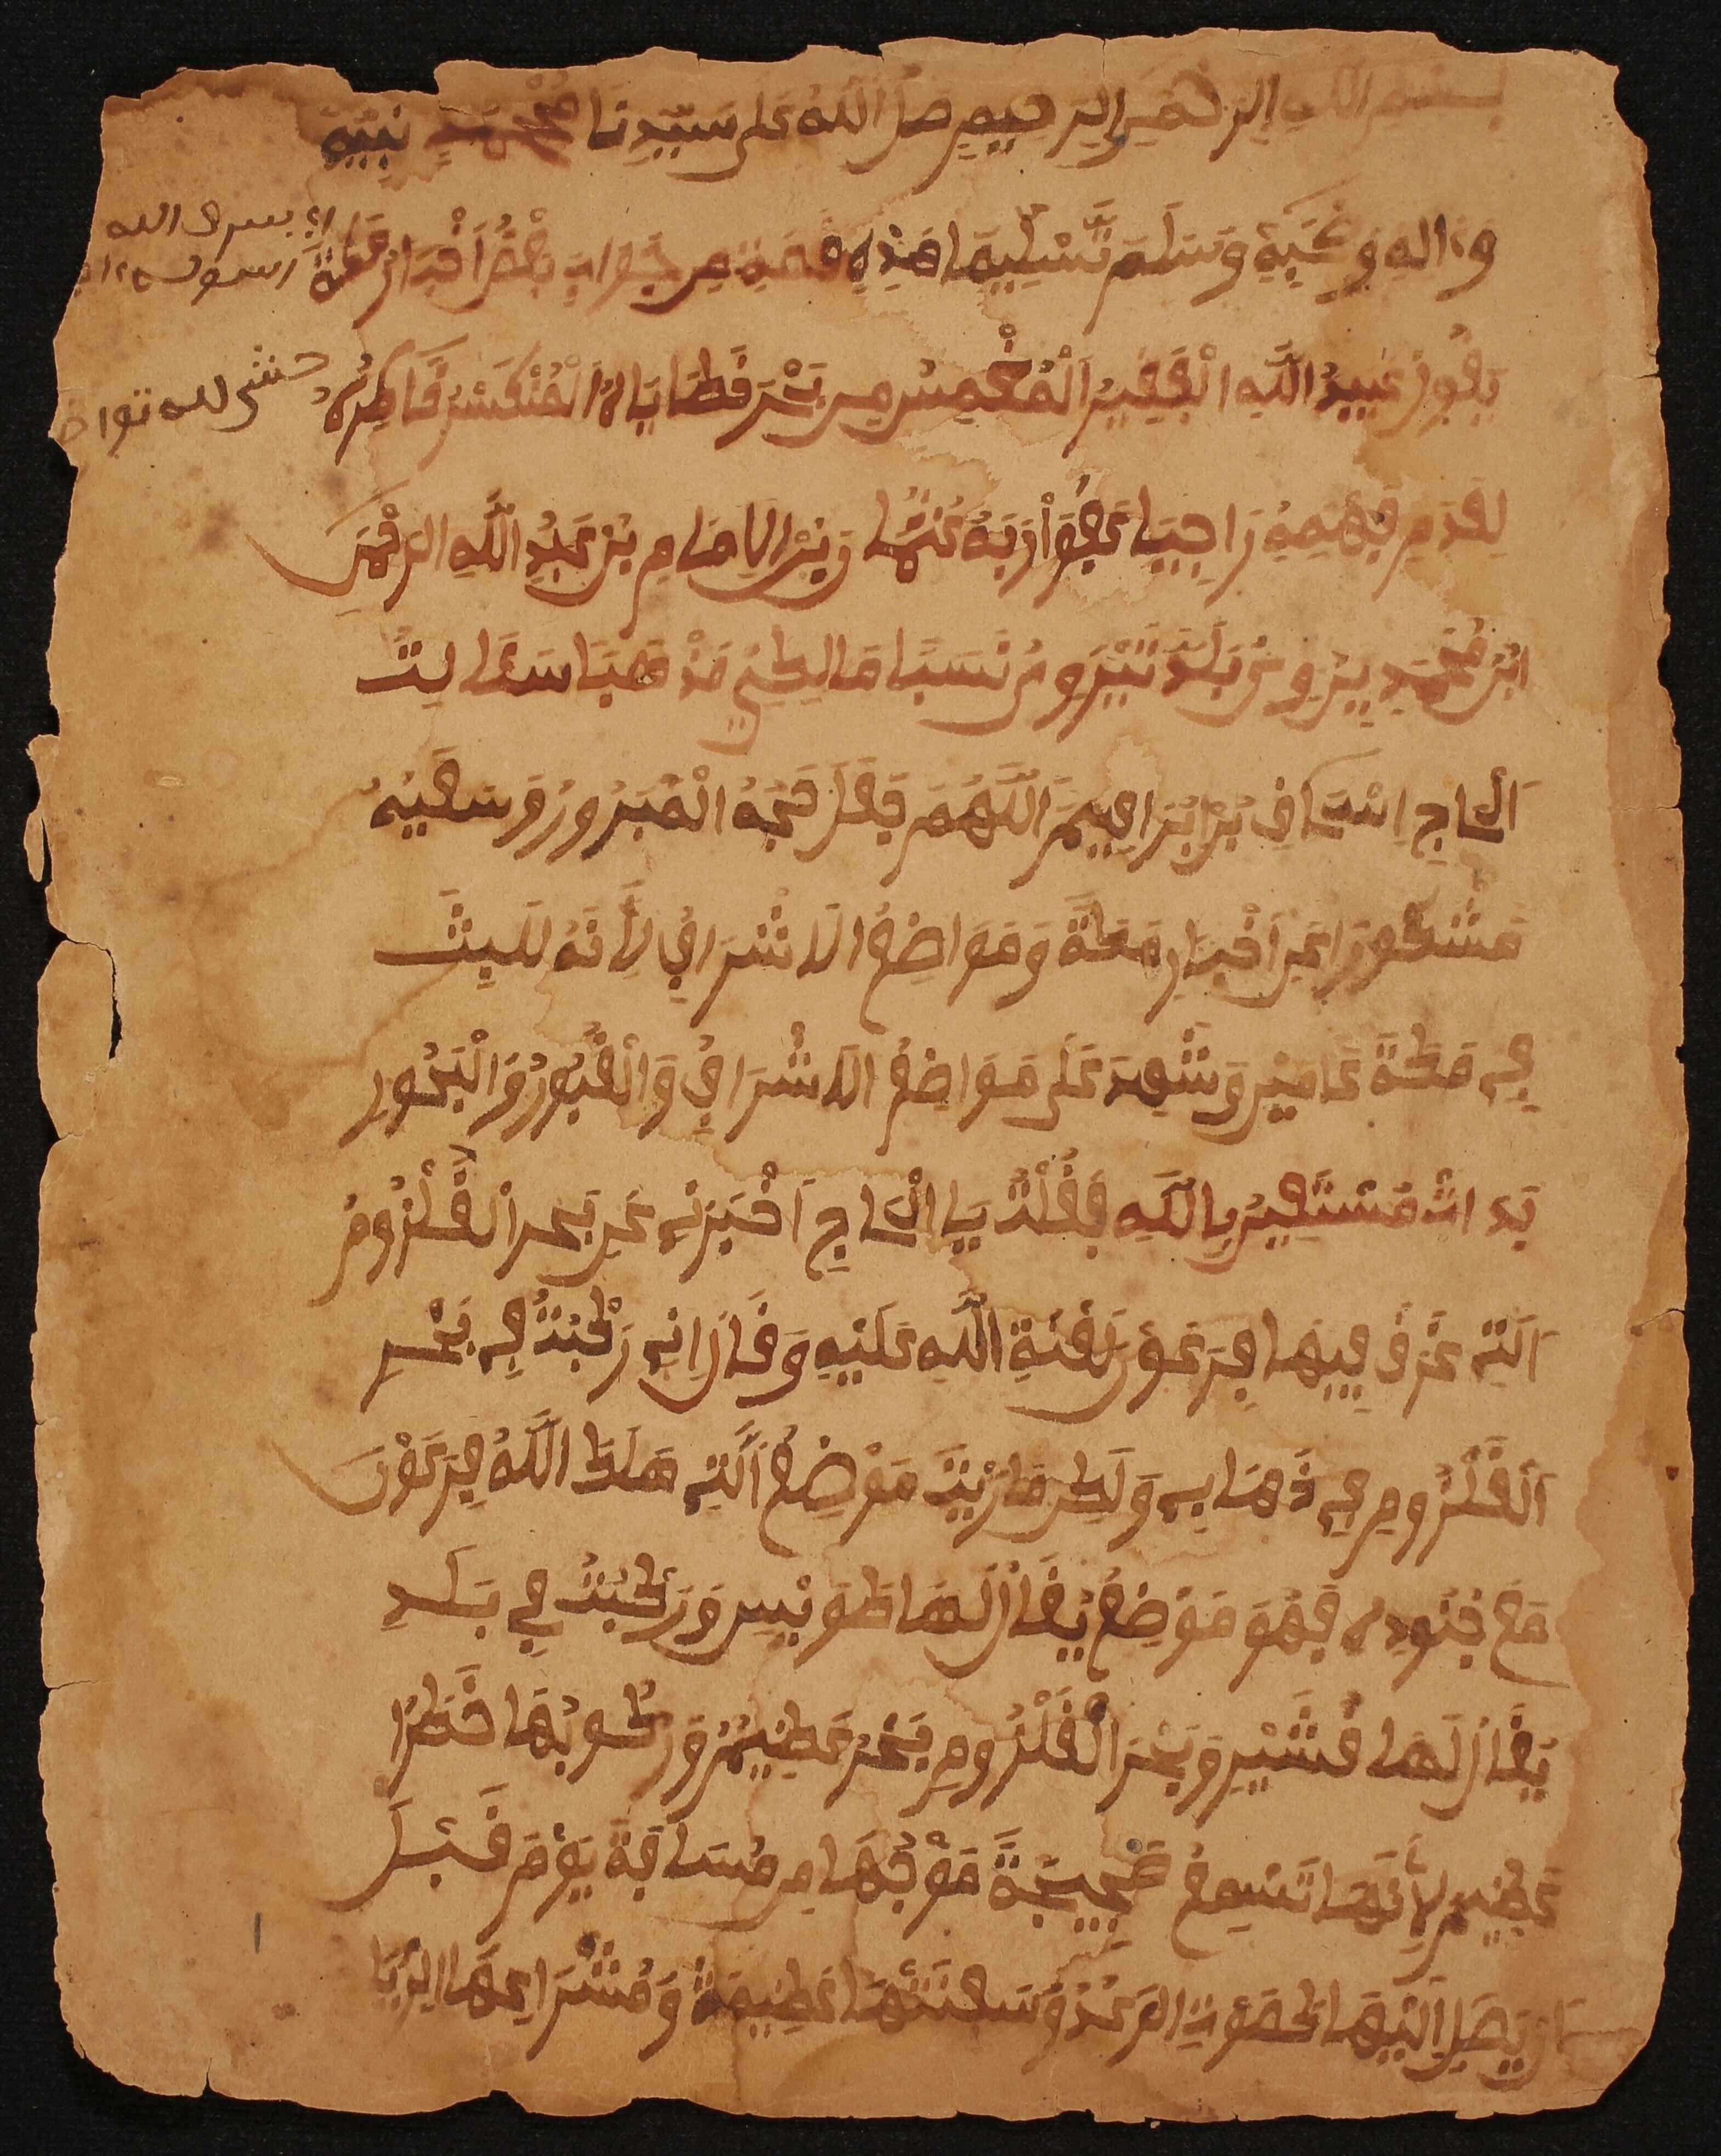 بسم الله الرحمن الرحيم صل الله على سيدنا محمد نبيه
وءاله وصحبه وسلم تسليما هذه قصة من جواب بعض اخبار مكة
يقول عبيد الله الفقير المغمس من بحر قطايا لا المنكسر فاكره
لعدم فهمه راجيا عفو ربه عنها وزير الامام بن عبد الله الرحمن
ابن محمد بروي بلد تبروي نسبا مالكي مذهبا سءالت
الحاج اسحاق بن ابراهيم اللهم تقبل حجه المبرور وسعيه
مشكورا عن اخبار مكة ومواضع الاشراف لأنه لبث
في مكة عامين وشهد على مواضع الاشراف والقبور والبحور
بدات مستعين بالله فقلت يا الحاج اخبرني عن بحر القلزوم
التي غرق فيها فرعون لعنة الله عليه وقال اني ركبت في بحر
القلزوم في ذهابي ولكن ما رئيت موضع التي هلك الله فرعون
مع جنوده فهو موضع يقال لها طويس وركبت في بلد
يقال لها قشير وبحر القلزوم بحر عظيم وركوبها خطرا
عظيم لأنها تسمع ضجيجة موجها من مسافة يوم قبل
ان يصل اليها كصوت الرعد وسفنتها عظيمة ومشراعها الريا